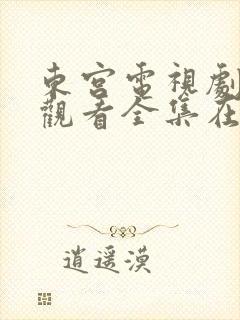 東宮電視劇
觀看全集在
逍遥漠